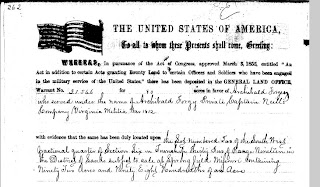 262
THE UNITED STATES OF AMERICA,
To all to whom these Presents shall come, Greeting:
WHEREAS, in pursuance of the Act of Congress, approved March 3, 1855, entitled "An
Act in addition to certain Acts granting Bounty Land to certain Officers and Soldiers who have been engaged
in the military service of the United States," there has been deposited in the GENERAL LAND OFFICE,
Warrant No. for acres, in favor of Archibald Forgey
who served under the name of Archibald Forgy Private Captain Neill's
Company Virginia Militia War 1812
with evidence that the same has been duly located upon the Lot Numbered Two of the South West
fractional quarter of Section Six in Township Thirty Two of Range Nineteen in
the District of Lands subject to sale at Springfield Missouri Containing
Ninety Two Acres and Ninety Eight hundredths of an Acre